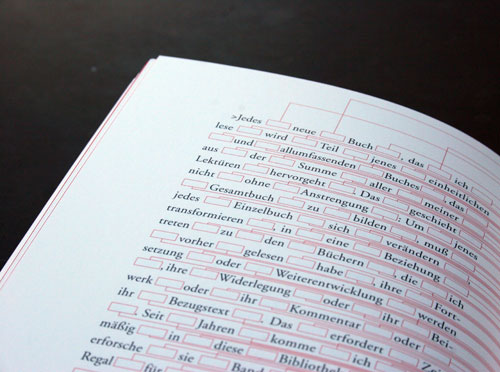 >Jedes neue Buch , das ich
lese wird Teil jenes einheitlichen
und allumfassenden Buches , das
aus der Summe aller meiner
Lektüren hervorgeht . Das geschieht
nicht ohne Anstrengung : Um jenes
Gesamtbuch zu bilden , muß
jedes Einzelbuch sich verändern
transformieren , in eine Beziehung
treten zu den Büchern , die ich
vorher gelesen habe , ihre Fort-
setzung oder Weiterentwicklung werden
, ihre Widerlegung oder ihr Bei-
werk oder ihr Kommentar oder
ihr Bezugstext . Das erfordert
. Seit Jahren komme ich
mäßig in diese
erforsche sie Band
Regal für